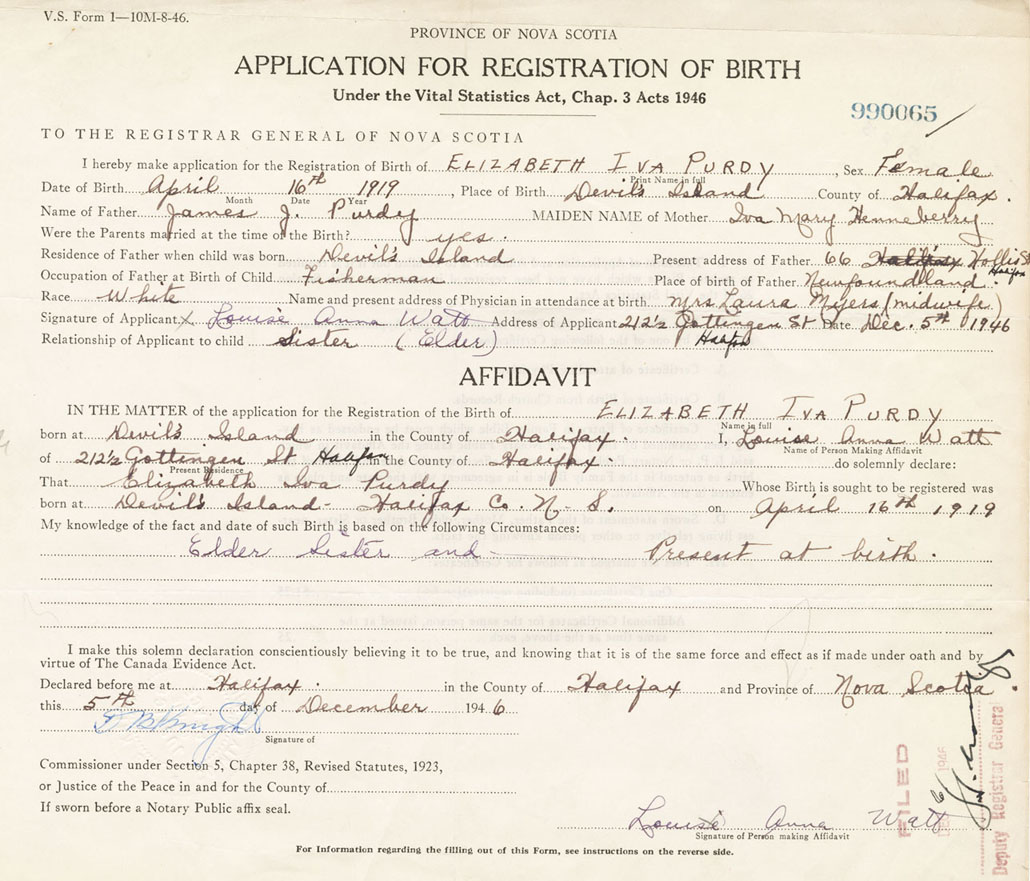 V.S. Form 1—10M-8-46.
PROVINCE OF NOVA SCOTIA
APPLICATION FOR REGISTRATION OF BIRTH
Under the Vital Statistics Act, Chap. 3 Acts 1946
990065
TO THE REGISTRAR GENERAL OF NOVA SCOTIA
I hereby make application for the Registration of Birth of ELIZABETH IVA PURDY, Sex Female
Print Name in full
Date of Birth April 16th 1919, Place of Birth Devil's Island County of Halifax.
Month Date Year
Name of Father James J. Purdy MAIDEN NAME of Mother Iva Mary Henneberry
Were the Parents married at the time of the Birth? yes.
Residence of Father when child was born Devil's Island Present address of Father 66 Halifax Hollis St Halifax
Occupation of Father at Birth of Child Fisherman Place of birth of Father Newfoundland.
Race White Name and present address of Physician in attendance at birth Mrs Laura Myers (midwife)
Signature of Applicant X Louise Anna Watt Address of Applicant 212½ Gottingen St Halifax Date Dec. 5th 1946
Relationship of Applicant to child Sister (Elder)
AFFIDAVIT
IN THE MATTER of the application for the Registration of the Birth of ELIZABETH IVA PURDY
Name in full
born at Devil's Island in the County of Halifax. I, Louise Anna Watt
Name of Person Making Affidavit
of 212½ Gottingen St Halifax in the County of Halifax. do solemnly declare:
Present Residence
That Elizabeth Iva Purdy Whose Birth is sought to be registered was
born at Devil's Island - Halifax Co. N. S. on April 16th 1919
My knowledge of the fact and date of such Birth is based on the following Circumstances:
Elder Sister and - Present at birth.
I make this solemn declaration conscientiously believing it to be true, and knowing that it is of the same force and effect as if made under oath and by
virtue of The Canada Evidence Act.
Declared before me at Halifax. in the County of Halifax and Province of Nova Scotia.
this 5th day of December 1946
Signature of
Commissioner under Section 5, Chapter 38, Revised Statutes, 1923,
or Justice of the Peace in and for the County of
If sworn before a Notary Public affix seal.
Louise Anna Watt
Signature of Person making Affidavit
FILED
Deputy Registrar General
For Information regarding the filling out of this Form, see instructions on the reverse side.